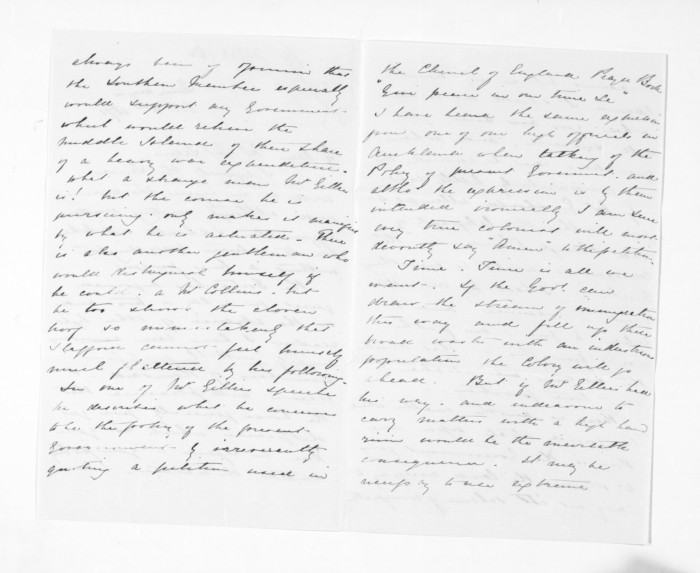 always been of opinion that
the Southern Member especially
would support any Government
which would relieve the
Middle Island of their share
of a heavy war expenditure.
What a strange man Mr Gillies
is! but the course he is
pursuing only makes it manifest
by what he is actuated. There
is also another gentleman who
would distinguish himself if
he could. a Mr Collins. but
he too shows the cloven
hoof so unmistakenly that
Stafford cannot feel himself
much flattered by his following.
In one of Mr Gillies speeches
he describes what he conceives
to be the policy of the present
Government by irreverently
quoting a petition used in
the Church of England Prayer Book
"Give peace in our time &c"
I have heard the same expression
from one of our high officials in
Auckland when talking of the
Policy of present Government. and
altho the expression is by them
intended ironically I am sure
every true colonist will most
devoutly say "Amen" to the petition.
Time. Time is all we
want. If the Govt. can
draw the stream of immigration
this way and fill up these
broad wastes with an industrious
population the Colony will go
ahead. But if Mr Gillies had
his way. and endeavor to
carry matters with a high hand
ruin would be the inevitable
consequence. It may be
necessy to use extreme